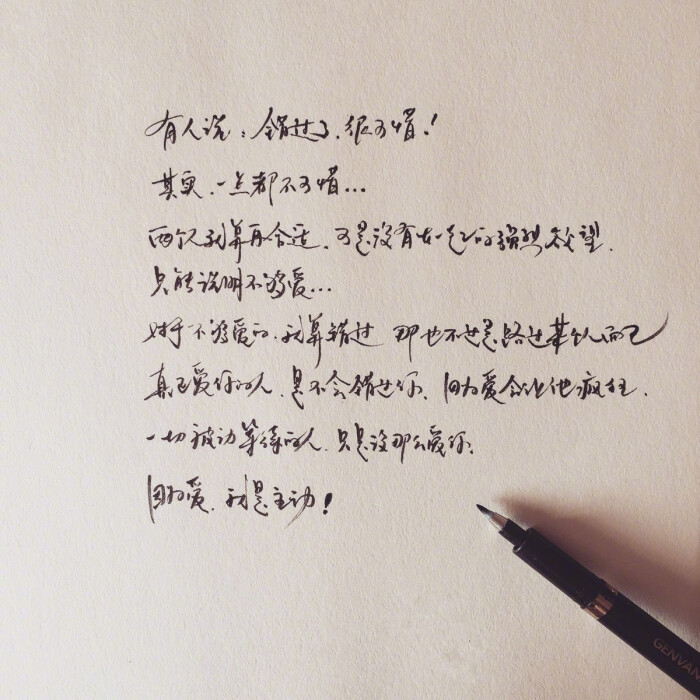 有人说：错过了、很可惜！
其实、一点都不可惜...
两个人就算再合适、可是没有在一起的强烈欲望、
只能说明不够爱...
对于不够爱的、就算错过 那也不过是路过某个人而已
真正爱你的人、是不会错过你、因为爱会让他疯狂、
一切被动等待的人、只是没那么爱你、
因为爱、就是主动！
GENVAN